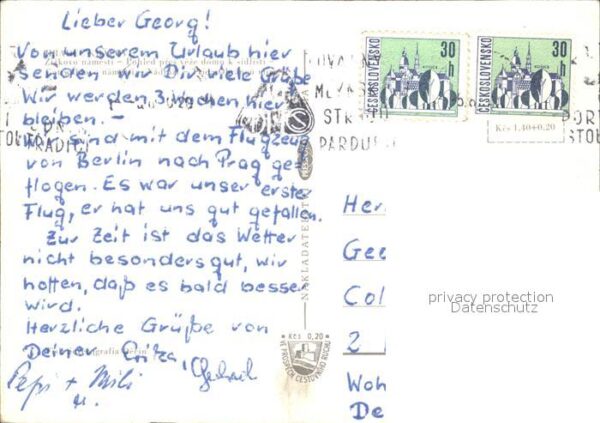 Lieber Georg!
Von unserem Urlaub hier
senden wir Dir viele Grüße
Wir werden 3 Wochen hier
bleiben.-
Wir sind mit dem Flugzeug
von Berlin nach Prag ge-
flogen. Es war unser erster
Flug, er hat uns gut gefallen.
Zur Zeit ist das Wetter
nicht besonders gut, wir
hoffen, daß es bald besser
wird.
Herzliche Grüße von
Deiner
Pepi + Mili
ČESKOSLOVENSKO
30 h
ČESKOSLOVENSKO
30 h
Kčs 1,40+0,20
PARDU
NAKLADATELSTV
Kčs 0,20
VE PROSPĚCH CESTOVNÍHO RUCHU
Her
Gee
Col
2
Woh
De
privacy protection
Datenschutz